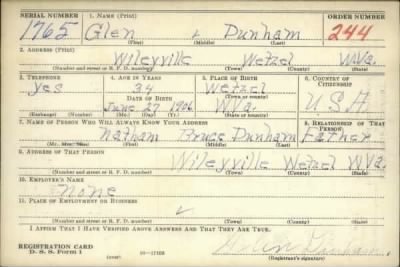 SERIAL NUMBER 1. NAME (Print) ORDER NUMBER
1765 Glen ✓ Dunham 244
(First) (Middle) (Last)
2. ADDRESS (Print)
Wileyville Wetzel W.Va.
(Number and street or R. F. D. number) (Town) (County) (State)
3. TELEPHONE 4. AGE IN YEARS 5. PLACE OF BIRTH 6. COUNTRY OF CITIZENSHIP
Yes 34 Wetzel
DATE OF BIRTH (Town or county)
June 27 1906 W.Va. U.S.A.
(Exchange) (Number) (Mo.) (Day) (Yr.) (State or country)
7. NAME OF PERSON WHO WILL ALWAYS KNOW YOUR ADDRESS 8. RELATIONSHIP OF THAT PERSON
Natham Bruce Dunham Father
(Mr., Mrs., Miss) (First) (Middle) (Last)
9. ADDRESS OF THAT PERSON
Wileyville Wetzel W.Va.
(Number and street or R. F. D. number) (Town) (County) (State)
10. EMPLOYER'S NAME
None
11. PLACE OF EMPLOYMENT OR BUSINESS
✓
(Number and street or R. F. D. number) (Town) (County) (State)
I AFFIRM THAT I HAVE VERIFIED ABOVE ANSWERS AND THAT THEY ARE TRUE.
REGISTRATION CARD Glen Dunham
D. S. S. Form 1 (over) (Registrant's signature)